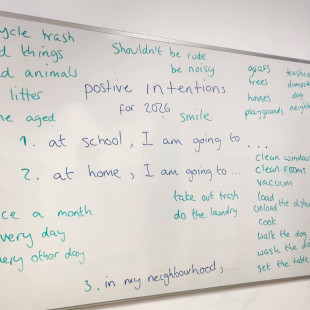 cycle trash
d things
d animals
litter
he aged
Shouldn't be rude
be noisy
postive intentions
for 2026
smile
grass
trees
houses
playgrounds
trashca
dumpste
dog
neighb
1. at school, I am going to ...
2. at home, I am going to ...
clean window
clean rooms
vacuum
load
unload the dishes
cook
walk the dog
wash the do
set the table
take out trash
do the laundry
ce a month
very day
very other day
3. in my neighbourhood, ...